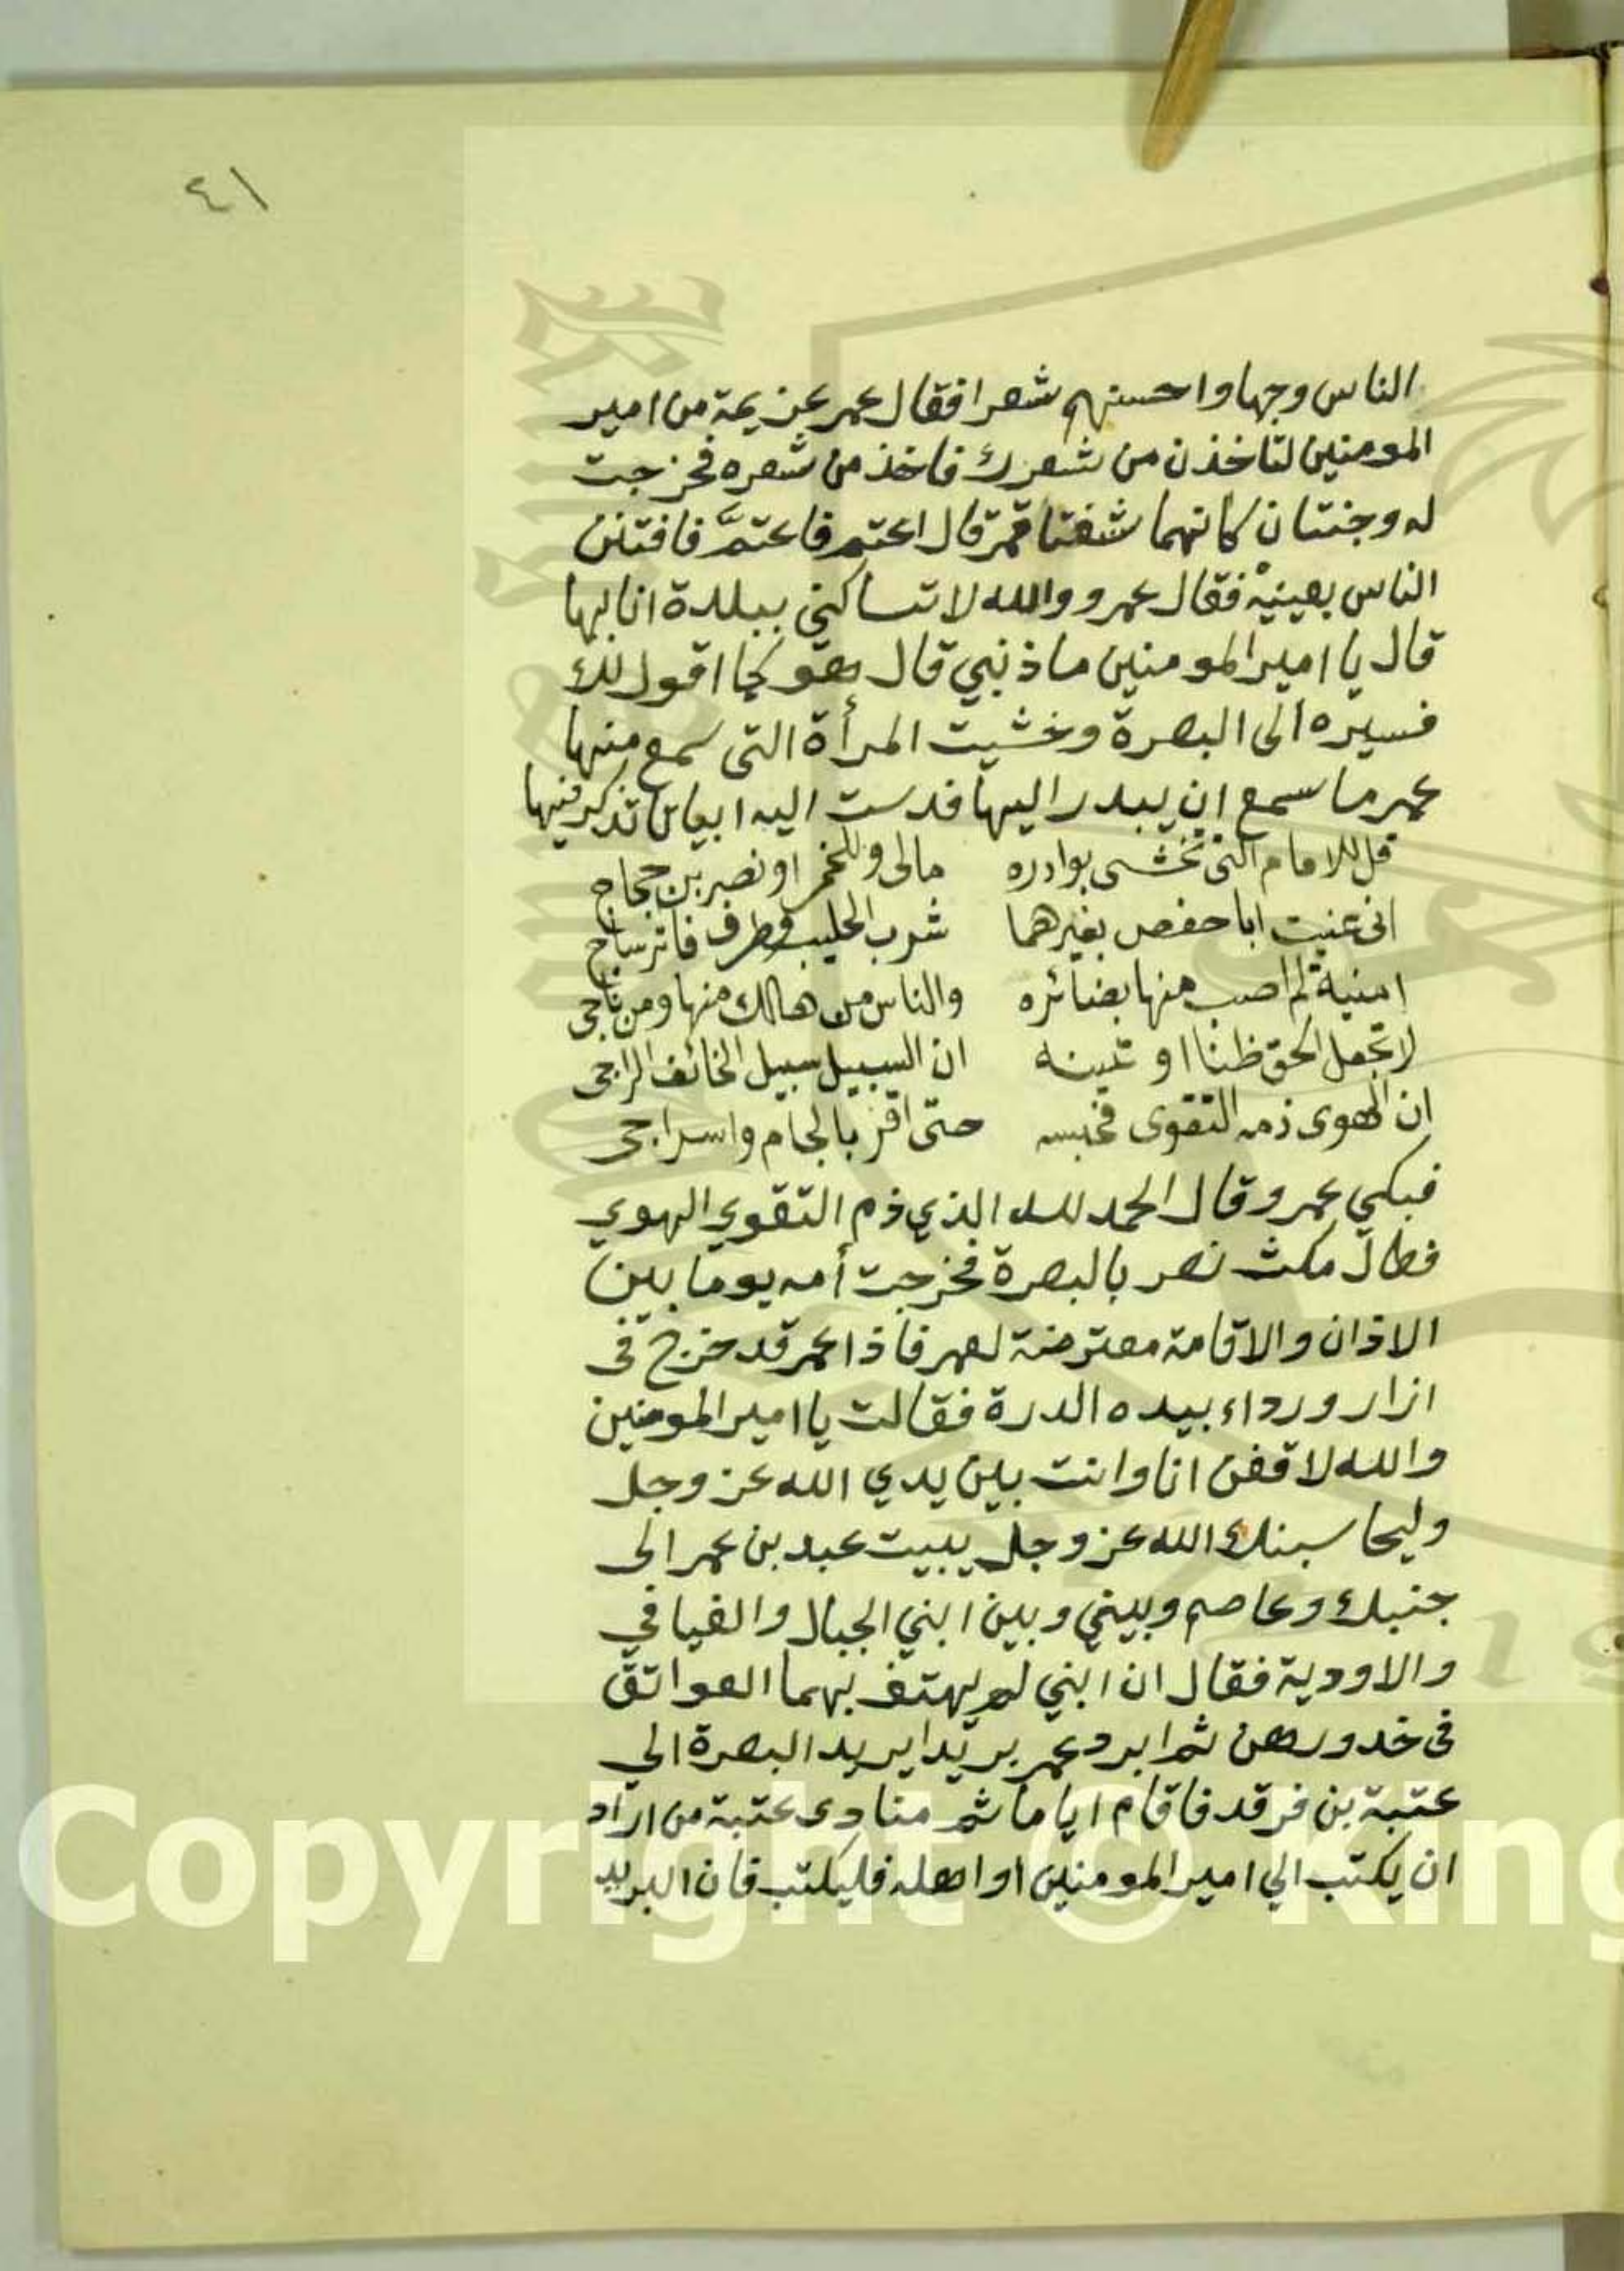 ٤١
الناس وجها واحسنهم شعرا فقال عمر عزيمة من امير
المومنين لتاخذن من شعرك فاخذ من شعره فخرجت
له وجنتان كانهما شقتا قمر قال اعتم فاعتمَّ فافتتن
الناس بعينيه فقال عمر ووالله لا تساكني ببلدة انا بها
قال يا امير المومنين ما ذنبي قال هو كما اقول لك
فسيره الى البصرة وخشيت المرأة التى سمع منها
عمر ما سمع ان يبدر اليها فدست اليه ابياتا تذكر فيها
قل للامام الذى تخشى بوادره مالى وللخمر او نصر بن حجاج
انى عنيت ابا حفص بغيرهما شرب الحليب وطرف فاتر ساج
امنية لم اصب منها بضائره والناس من هالك منها ومن ناجى
لا تجعل الحق ظنا او تبينه ان السبيل سبيل الخائف الراجى
ان الهوى ذمه التقوى فحبسه حتى اقر بالجام واسراجى
فبكي عمر وقال الحمد لله الذي ذم التقوي الهوي
فطال مكث نصر بالبصرة فخرجت أمه يوما بين
الاذان والاقامة معترضة لعمر فاذا عمر قد خرج فى
ازار ورداء بيده الدرة فقالت يا امير المومنين
والله لاقفن انا وانت بين يدي الله عز وجل
وليحاسبنك الله عز وجل يبيت عبد بن عمر الى
جنبك وعاصم وبيني وبين ابني الجبال والفيافي
والاودية فقال ان ابني لم يهتف بهما العواتق
فى خدورهن ثم ابرد عمر بريدا يريد البصرة الي
عتبة بن فرقد فاقام اياما ثم منادى عتبة من اراد
ان يكتب الي امير المومنين او اهله فليكتب فان البريد
Copyright © King